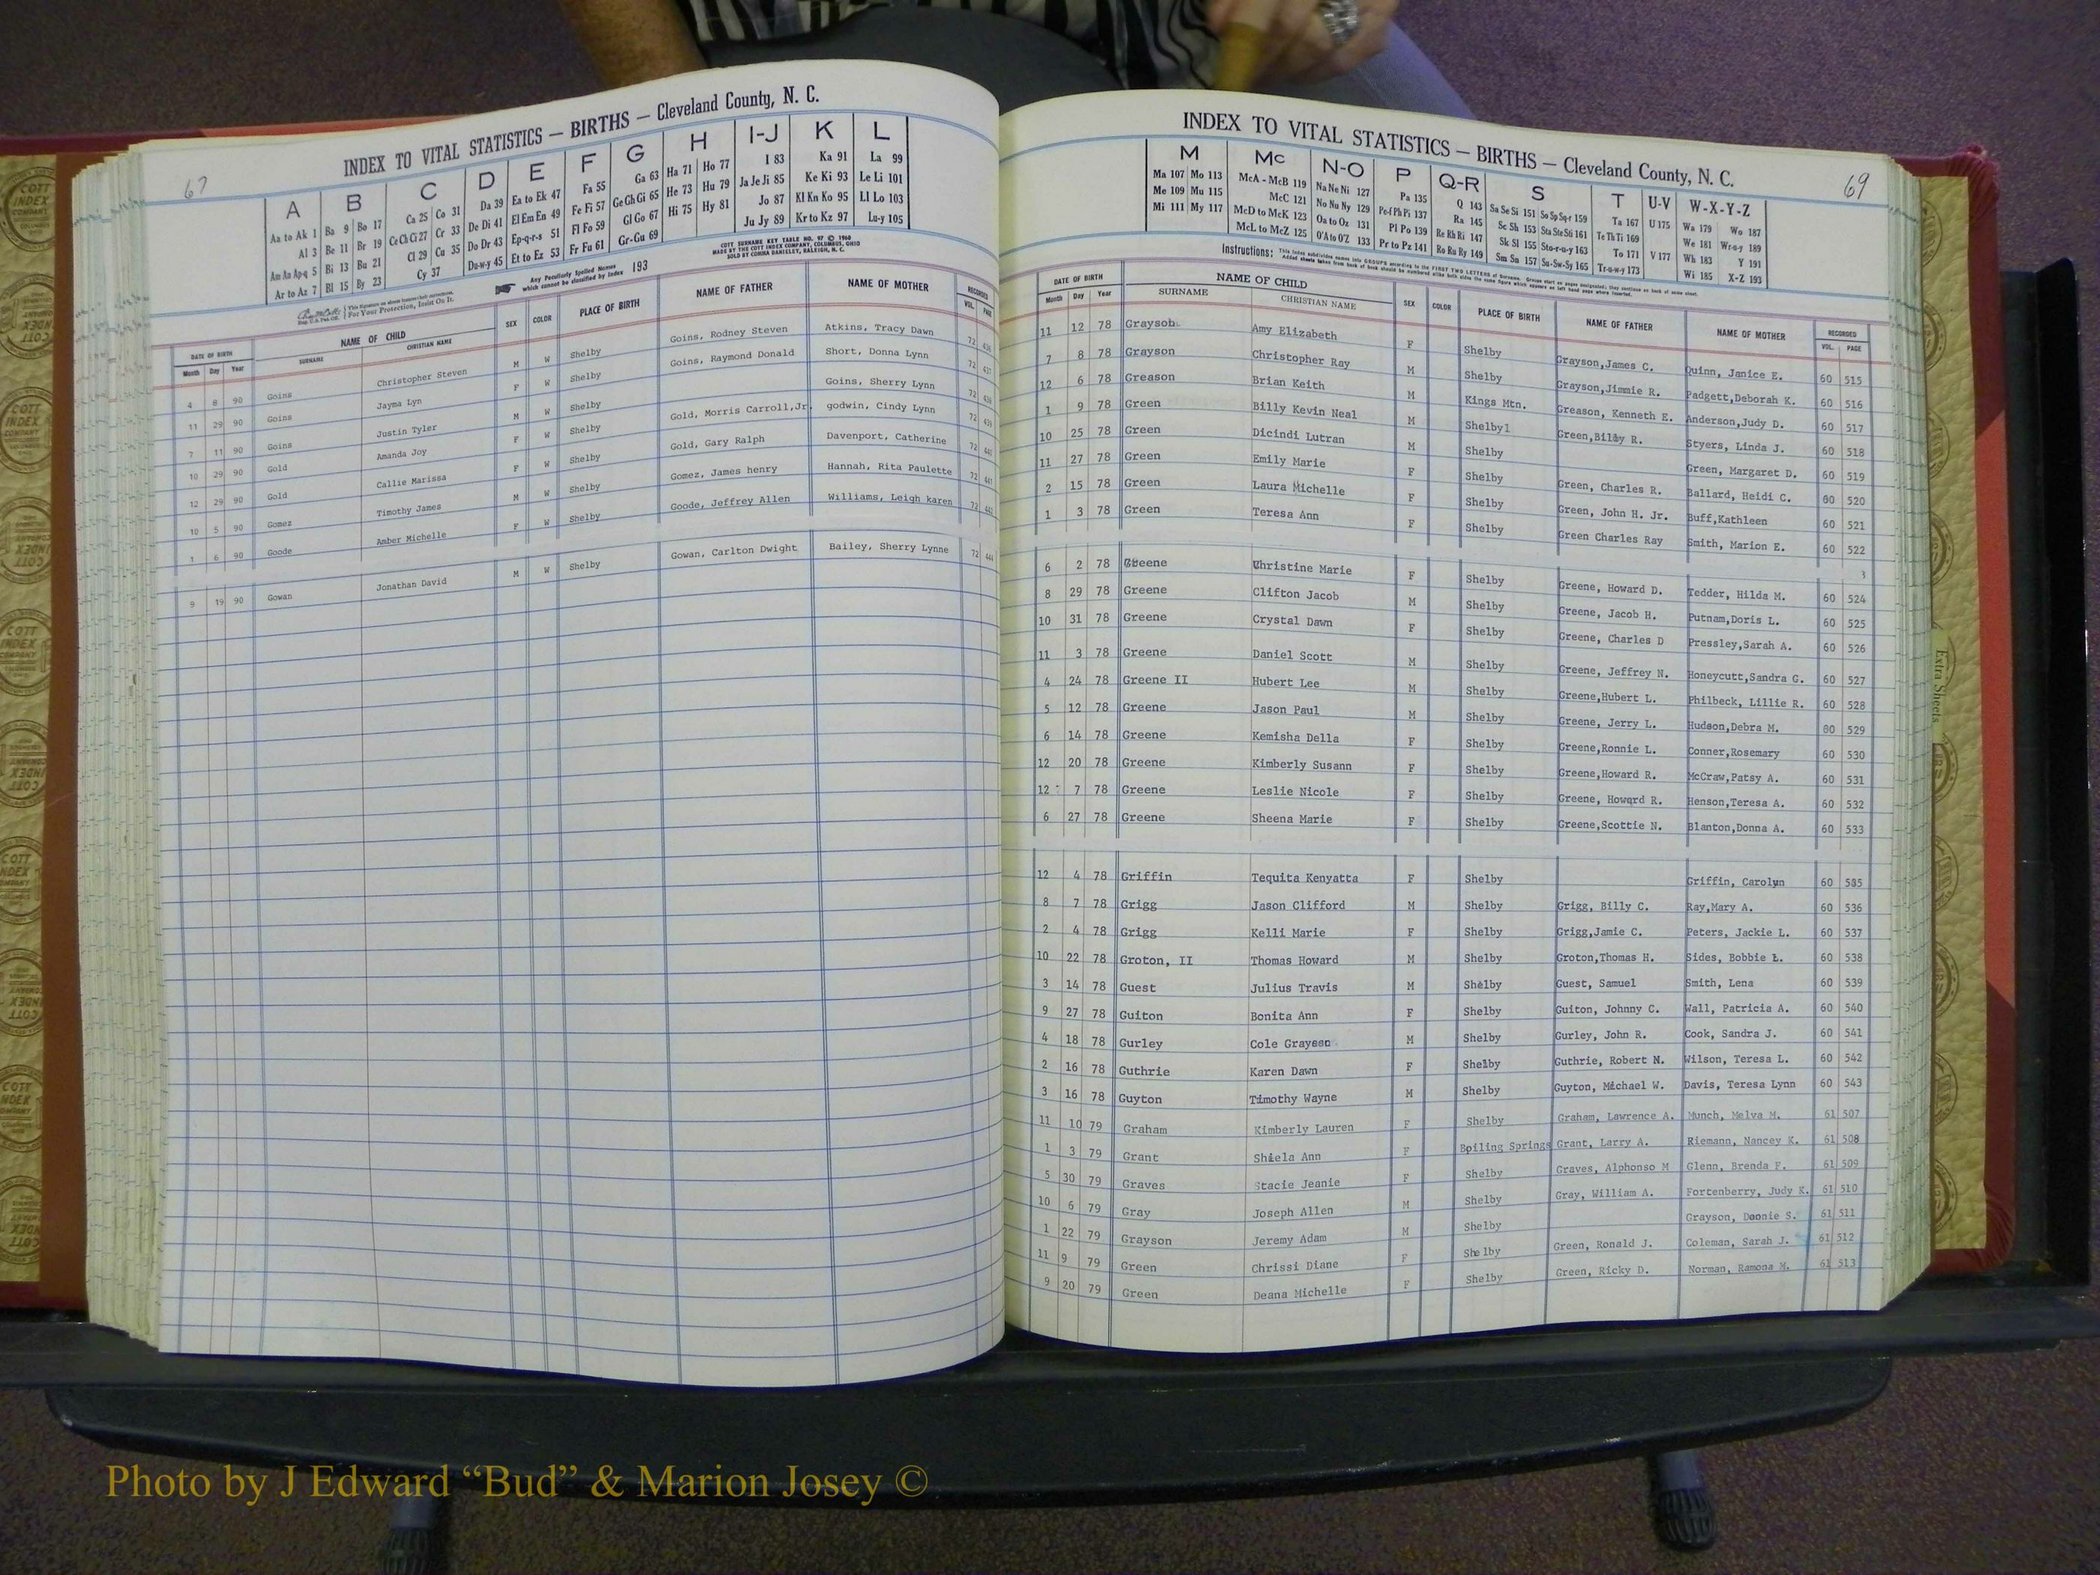 67
INDEX TO VITAL STATISTICS — BIRTHS — Cleveland County, N. C.
A B C D E F G H I-J K L
Aa to Ak 1 Ba 9 Bo 17 Ca 25 Co 31 Da 39 Ea to Ek 47 Fa 55 Ga 63 Ha 71 Ho 77 I 83 Ka 91 La 99
Al 3 Be 11 Br 19 Ce Ch Ci 27 Cr 33 De Di 41 El Em En 49 Fe Fi 57 Ge Gh Gi 65 He 73 Hu 79 Ja Je Ji 85 Ke Ki 93 Le Li 101
Am An Ap-q 5 Bi 13 Bu 21 Cl 29 Cu 35 Do Dr 43 Ep-q-r-s 51 Fl Fo 59 Gl Go 67 Hi 75 Hy 81 Jo 87 Kl Kn Ko 95 Ll Lo 103
Ar to Az 7 Bl 15 By 23 Cy 37 Du-w-y 45 Et to Ez 53 Fr Fu 61 Gr-Gu 69 Ju Jy 89 Kr to Kz 97 Lu-y 105
COTT SURNAME KEY TABLE NO. 97 © 1960
MADE BY THE COTT INDEX COMPANY, COLUMBUS, OHIO
SOLD BY COMMA DANIELEY, RALEIGH, N. C.
Any Peculiarly Spelled Names which cannot be classified by Index 193
For Your Protection, Insist On It.
DATE OF BIRTH NAME OF CHILD SEX COLOR PLACE OF BIRTH NAME OF FATHER NAME OF MOTHER RECORDED
Month Day Year SURNAME CHRISTIAN NAME VOL. PAGE
4 8 90 Goins Christopher Steven M W Shelby Goins, Rodney Steven Atkins, Tracy Dawn 72 436
11 29 90 Goins Jayma Lyn F W Shelby Goins, Raymond Donald Short, Donna Lynn 72 437
7 11 90 Goins Justin Tyler M W Shelby Goins, Sherry Lynn 72 438
10 29 90 Gold Amanda Joy F W Shelby Gold, Morris Carroll,Jr. godwin, Cindy Lynn 72 439
12 29 90 Gold Callie Marissa F W Shelby Gold, Gary Ralph Davenport, Catherine 72 440
10 5 90 Gomez Timothy James M W Shelby Gomez, James henry Hannah, Rita Paulette 72 441
1 6 90 Goode Amber Michelle F W Shelby Goode, Jeffrey Allen Williams, Leigh karen 72 442
9 19 90 Gowan Jonathan David M W Shelby Gowan, Carlton Dwight Bailey, Sherry Lynne 72 444
69
INDEX TO VITAL STATISTICS — BIRTHS — Cleveland County, N. C.
M Mc N-O P Q-R S T U-V W-X-Y-Z
Ma 107 Mo 113 McA - McB 119 Na Ne Ni 127 Pa 135 Q 143 Sa Se Si 151 So Sp Sq-r 159 Ta 167 U 175 Wa 179 Wo 187
Me 109 Mu 115 McC 121 No Nu Ny 129 Pe-f Ph Pi 137 Ra 145 Sc Sh 153 Sta Ste Sti 161 Te Th Ti 169 We 181 Wr-u-y 189
Mi 111 My 117 McD to McK 123 Oa to Oz 131 Pl Po 139 Re Rh Ri 147 Sk Sl 155 Sto-r-u-y 163 To 171 V 177 Wh 183 Y 191
McL to McZ 125 O'A to O'Z 133 Pr to Pz 141 Ro Ru Ry 149 Sm Sn 157 Su-Sw-Sy 165 Tr-u-w-y 173 Wi 185 X-Z 193
Instructions:
DATE OF BIRTH NAME OF CHILD SEX COLOR PLACE OF BIRTH NAME OF FATHER NAME OF MOTHER RECORDED
Month Day Year SURNAME CHRISTIAN NAME VOL. PAGE
11 12 78 Grayson Amy Elizabeth F Shelby Grayson,James C. Quinn, Janice E. 60 515
7 8 78 Grayson Christopher Ray M Shelby Grayson,Jimmie R. Padgett,Deborah K. 60 516
12 6 78 Greason Brian Keith M Kings Mtn. Greason, Kenneth E. Anderson,Judy D. 60 517
1 9 78 Green Billy Kevin Neal M Shelbyl Green,Billy R. Styers, Linda J. 60 518
10 25 78 Green Dicindi Lutran M Shelby Green, Margaret D. 60 519
11 27 78 Green Emily Marie F Shelby Green, Charles R. Ballard, Heidi C. 60 520
2 15 78 Green Laura Michelle F Shelby Green, John H. Jr. Buff,Kathleen 60 521
1 3 78 Green Teresa Ann F Shelby Green Charles Ray Smith, Marion E. 60 522
3
6 2 78 Greene Christine Marie F Shelby Greene, Howard D. Tedder, Hilda M. 60 524
8 29 78 Greene Clifton Jacob M Shelby Greene, Jacob H. Putnam,Doris L. 60 525
10 31 78 Greene Crystal Dawn F Shelby Greene, Charles D Pressley,Sarah A. 60 526
11 3 78 Greene Daniel Scott M Shelby Greene, Jeffrey N. Honeycutt,Sandra G. 60 527
4 24 78 Greene II Hubert Lee M Shelby Greene,Hubert L. Philbeck, Lillie R. 60 528
5 12 78 Greene Jason Paul M Shelby Greene, Jerry L. Hudson,Debra M. 60 529
6 14 78 Greene Kemisha Della F Shelby Greene,Ronnie L. Conner,Rosemary 60 530
12 20 78 Greene Kimberly Susann F Shelby Greene,Howard R. McCraw,Patsy A. 60 531
12 7 78 Greene Leslie Nicole F Shelby Greene, Howqrd R. Henson,Teresa A. 60 532
6 27 78 Greene Sheena Marie F Shelby Greene,Scottie N. Blanton,Donna A. 60 533
12 4 78 Griffin Tequita Kenyatta F Shelby Griffin, Carolyn 60 535
8 7 78 Grigg Jason Clifford M Shelby Grigg, Billy C. Ray,Mary A. 60 536
2 4 78 Grigg Kelli Marie F Shelby Grigg,Jamie C. Peters, Jackie L. 60 537
10 22 78 Groton, II Thomas Howard M Shelby Groton,Thomas H. Sides, Bobbie L. 60 538
3 14 78 Guest Julius Travis M Shelby Guest, Samuel Smith, Lena 60 539
9 27 78 Guiton Bonita Ann F Shelby Guiton, Johnny C. Wall, Patricia A. 60 540
4 18 78 Gurley Cole Grayson M Shelby Gurley, John R. Cook, Sandra J. 60 541
2 16 78 Guthrie Karen Dawn F Shelby Guthrie, Robert N. Wilson, Teresa L. 60 542
3 16 78 Guyton Timothy Wayne M Shelby Guyton, Michael W. Davis, Teresa Lynn 60 543
11 10 79 Graham Kimberly Lauren F Shelby Graham, Lawrence A. Munch, Melva M. 61 507
1 3 79 Grant Shiela Ann F Boiling Springs Grant, Larry A. Riemann, Nancey K. 61 508
5 30 79 Graves Stacie Jeanie F Shelby Graves, Alphonso M Glenn, Brenda F. 61 509
10 6 79 Gray Joseph Allen M Shelby Gray, William A. Fortenberry, Judy K. 61 510
1 22 79 Grayson Jeremy Adam M Shelby Grayson, Doonie S. 61 511
11 9 79 Green Chrissi Diane F Shelby Green, Ronald J. Coleman, Sarah J. 61 512
9 20 79 Green Deana Michelle F Shelby Green, Ricky D. Norman, Ramona M. 61 513
Extra Sheets
Photo by J Edward “Bud” & Marion Josey ©